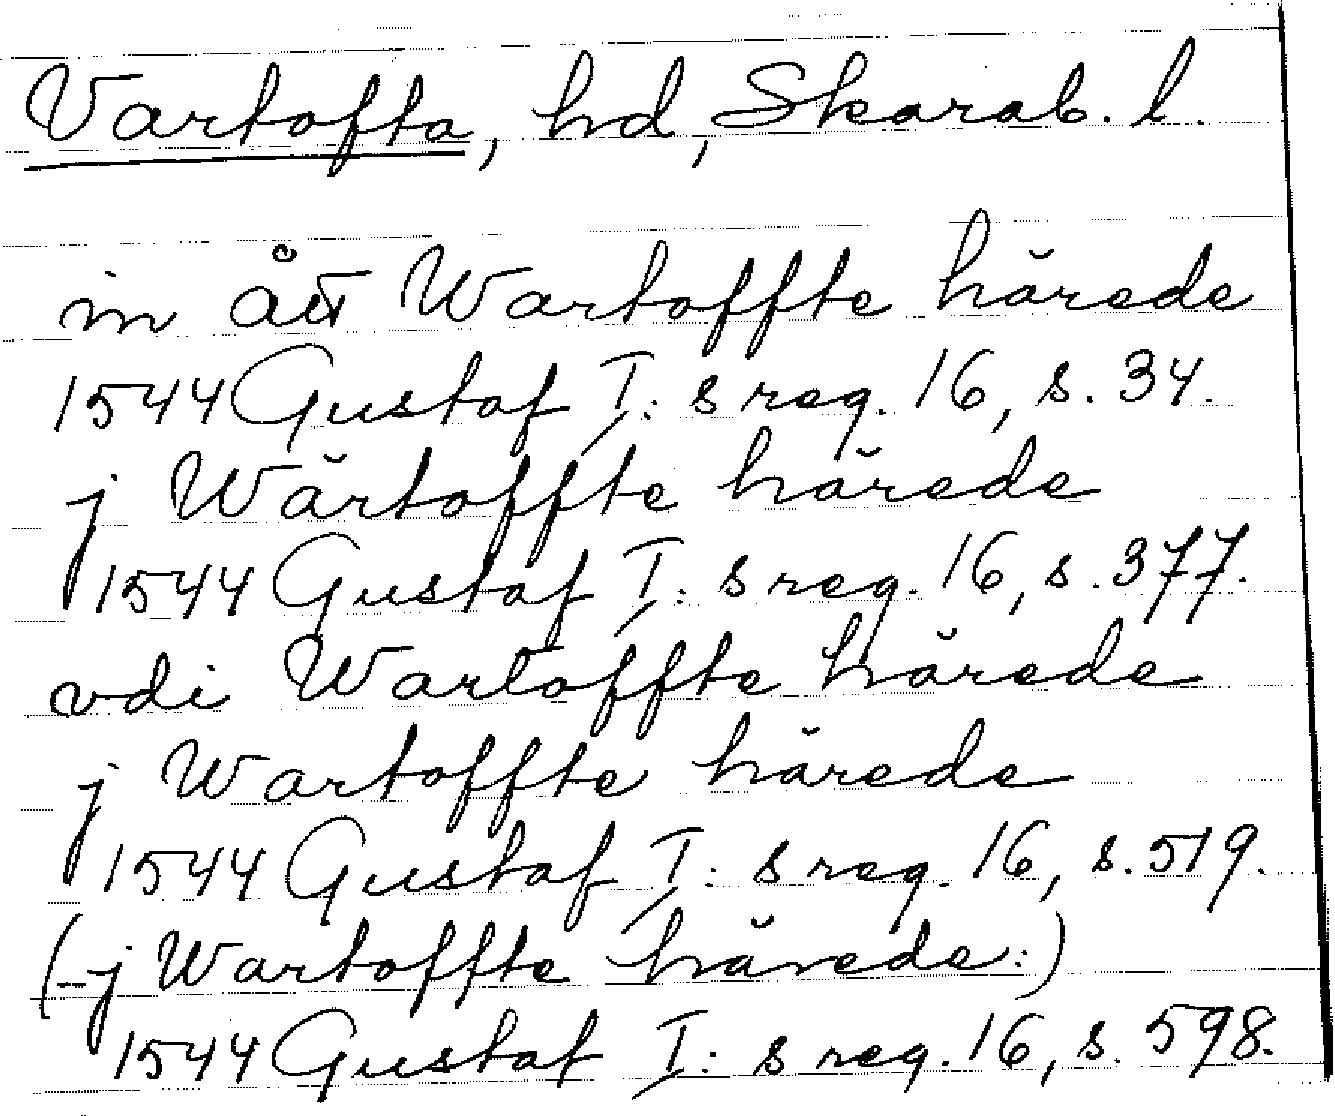 Vartofta, hd, Skarab. l.
in ått Wartoffte härede
1544 Gustaf I: s reg. 16, s. 34.
j Wärtoffte härede
1544 Gustaf I: s reg. 16, s. 377.
vdi Wartoffte härede
j Wartoffte härede
1544 Gustaf I: s reg. 16, s. 519.
(:j Wartoffte härede:)
1544 Gustaf I: s reg. 16, s. 598.